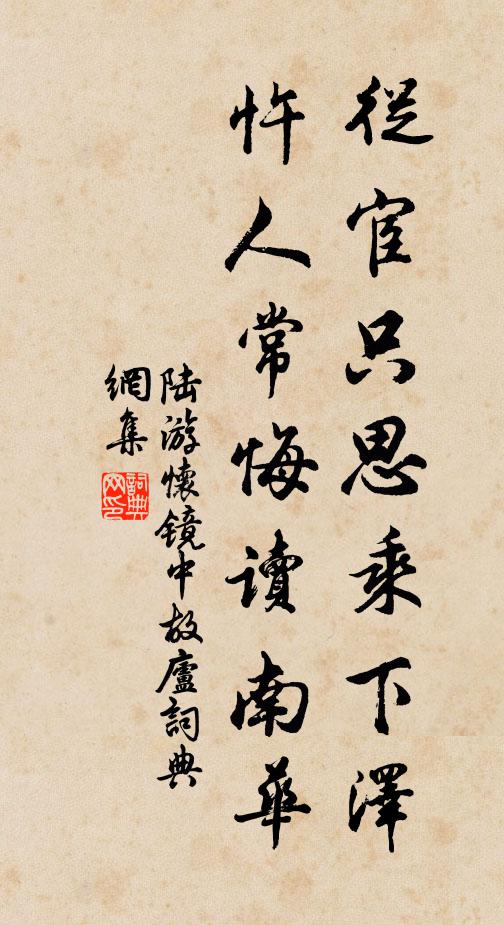 從宦只思乘下澤
忤人常悔讀南華
陸游懷镜中故廬詞典
網集
詞典
网印